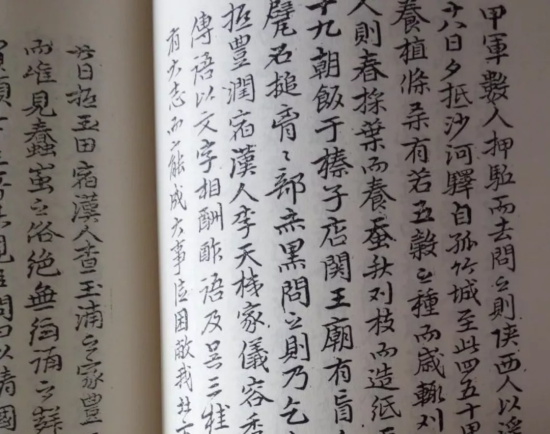 甲軍數人押駈而去問之則陝西人以
十八日夕抵沙河驛自孤竹城至此四五十里
養植條桒有若五穀之種而歲輙刈
人則春採葉而養蚕秋刈枝而造紙
十九朝飯于榛子店関王廟有盲
躄石搥膏〻部亦黑問之則乃乞
抵豐潤宿漢人李天機家儀容秀
傳語以文字相酬酢語及吳三桂
有大志而不能成大事
廿日抵玉田宿漢人查玉浦之家豐
而唯見蠶蚕之俗絶無誦之